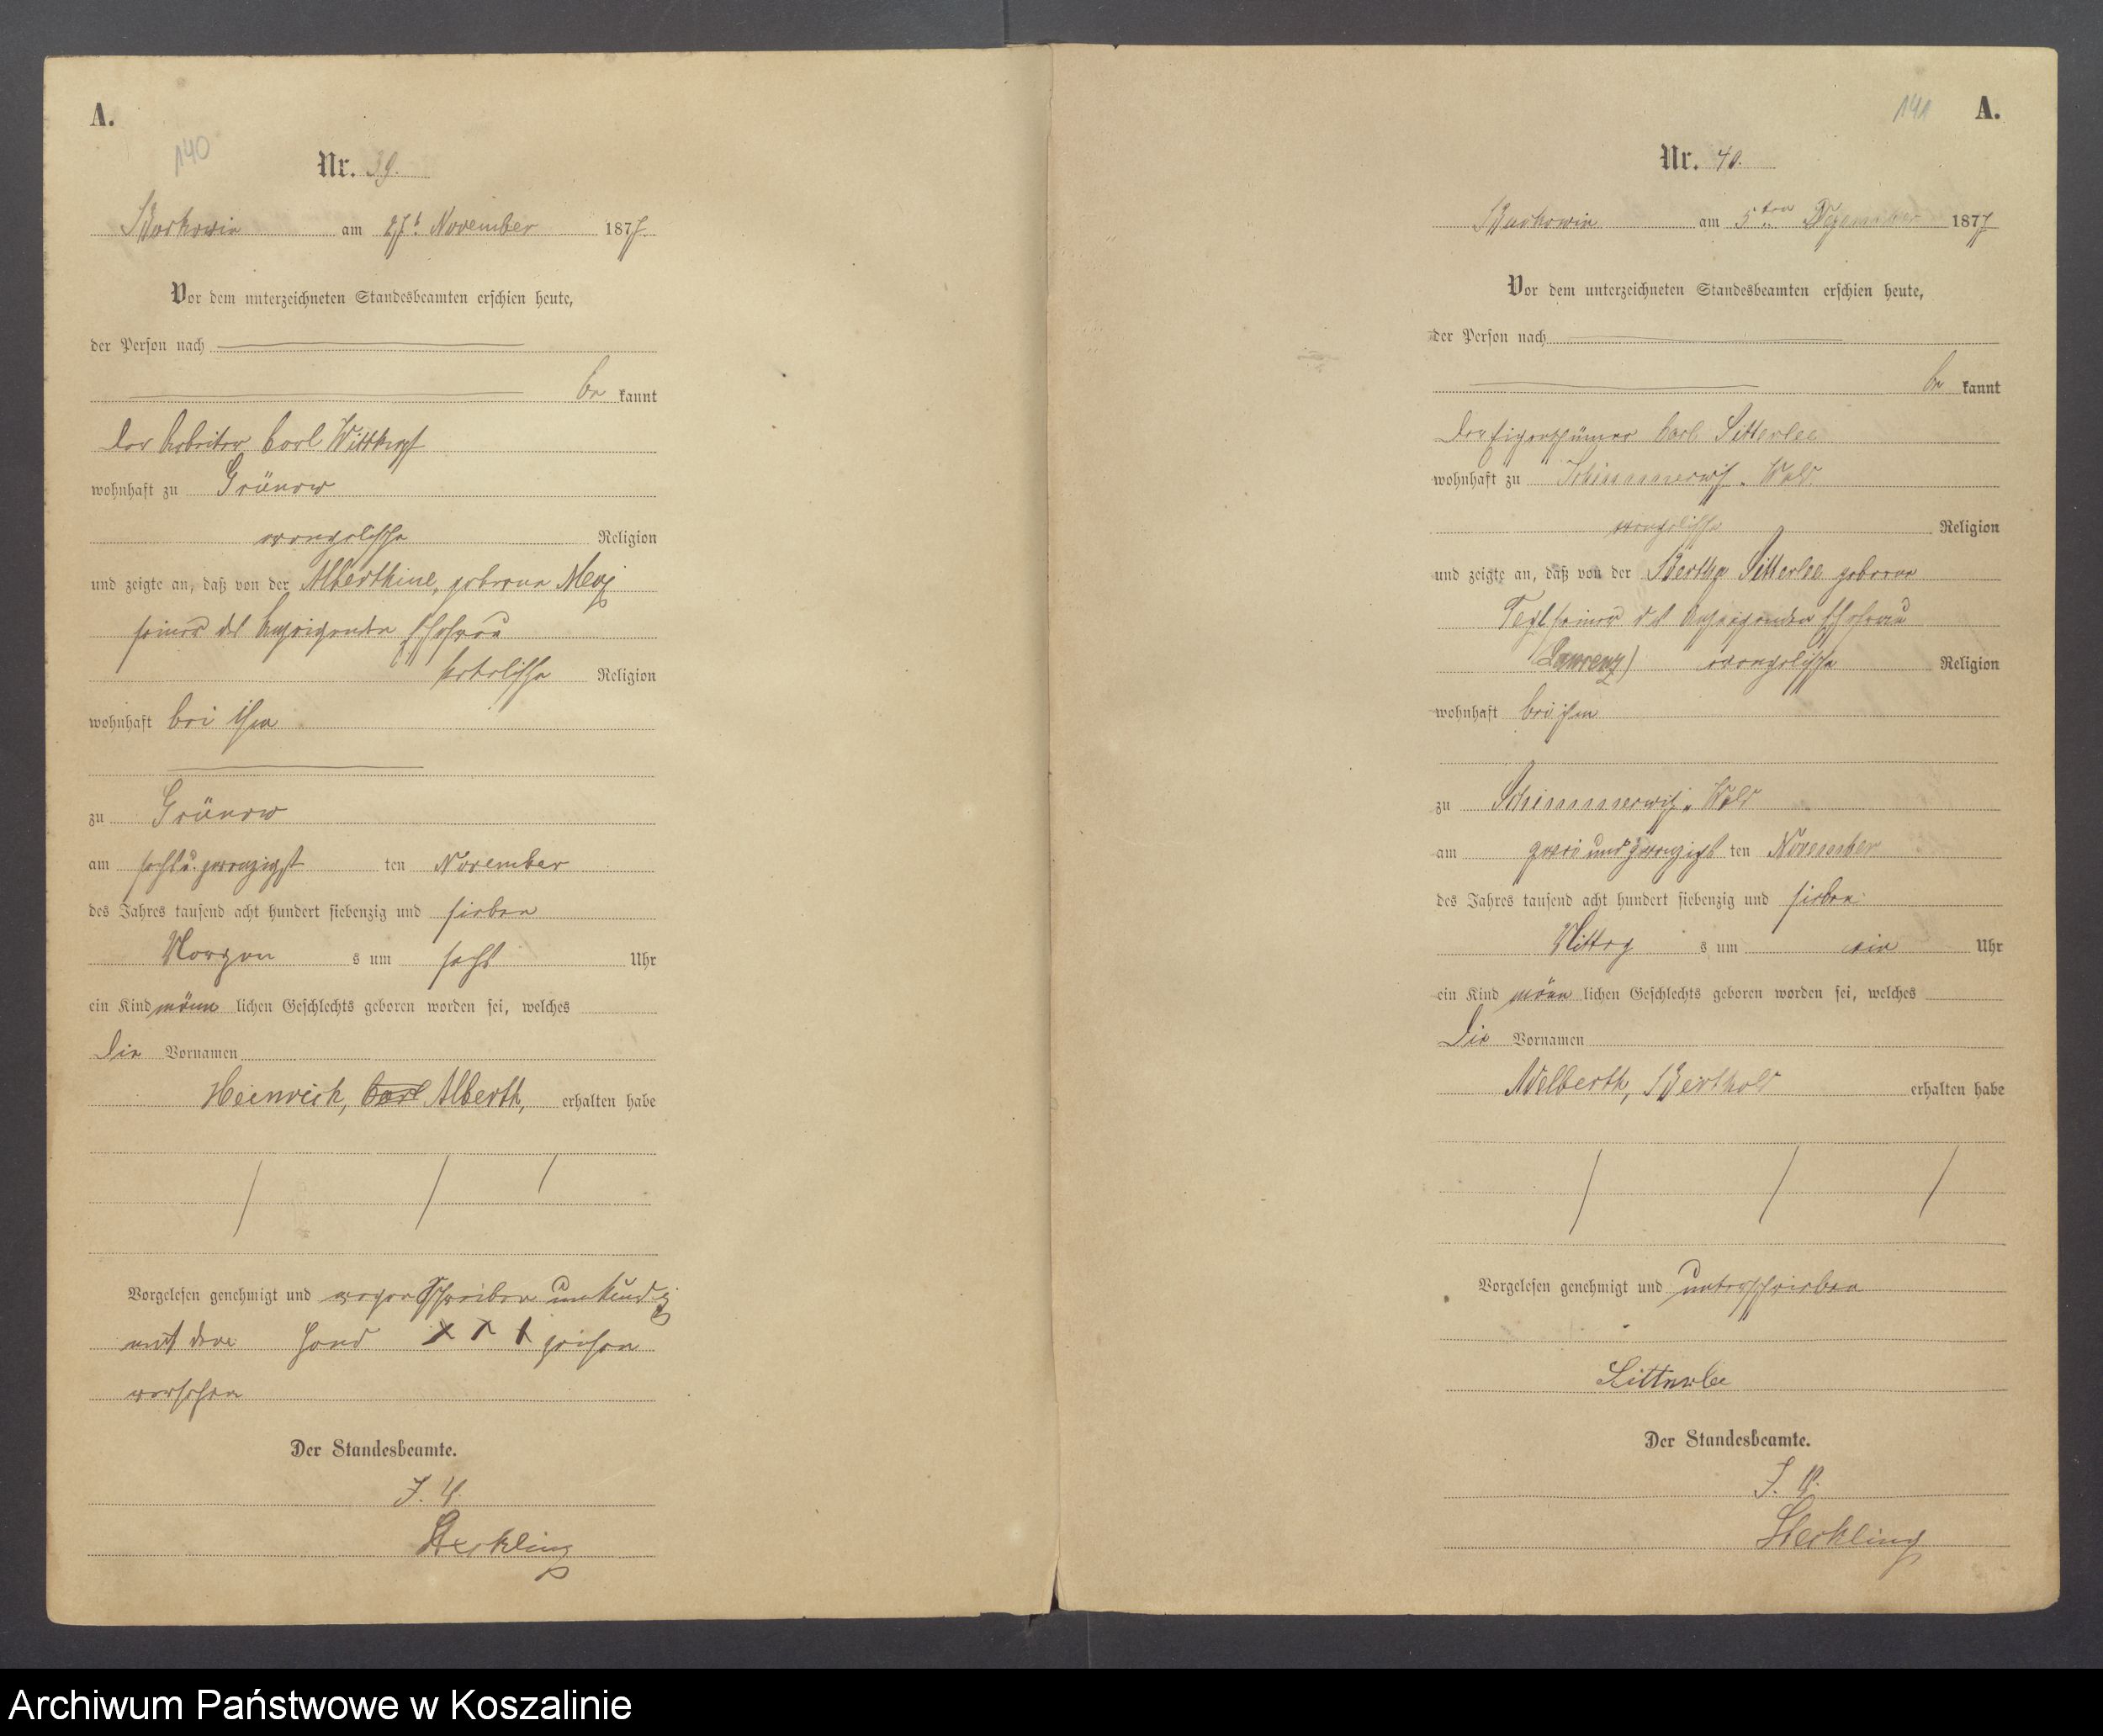 A.
140
Nr. 39.
Barkowin am 27t November 1877.
Vor dem unterzeichneten Standesbeamten erschien heute,
der Person nach
be kannt
der Arbeiter Carl Wittkopf
wohnhaft zu Grünow
evangelischer Religion
und zeigte an, daß von der Alberthine, geborene
seiner des Anzeigenden Ehefrau
katolischer Religion
wohnhaft bei ihm
zu Grünow
am sechs u. zwanzigst ten November
des Jahres tausend acht hundert siebenzig und sieben
Morgen s um sechs Uhr
ein Kind männ lichen Geschlechts geboren worden sei, welches
die Vornamen
Heinrich, Carl Alberth, erhalten habe
Vorgelesen genehmigt und wegen Schreiben unkundig
mit drei Hand X X X zeichen
versehen
Der Standesbeamte.
J. V.
Sterkling
141 A.
Nr. 40.
Barkowin am 5ten Dezember 1877
Vor dem unterzeichneten Standesbeamten erschien heute,
der Person nach
be kannt
der Eigenthümer Carl Sitterlee
wohnhaft zu Schimmerwitz Wald
evangelischer Religion
und zeigte an, daß von der Bertha Sitterlee geborene
seiner des Anzeigenden Ehefrau
Lawrenz) evangelischer Religion
wohnhaft bei ihm
zu Schimmerwitz Wald
am zwei und zwanzigst ten November
des Jahres tausend acht hundert siebenzig und sieben
Mittag s um ein Uhr
ein Kind männ lichen Geschlechts geboren worden sei, welches
die Vornamen
Adelberth, Berthold erhalten habe
Vorgelesen genehmigt und unterschrieben
Sitterlee
Der Standesbeamte.
J. V.
Sterkling
Archiwum Państwowe w Koszalinie